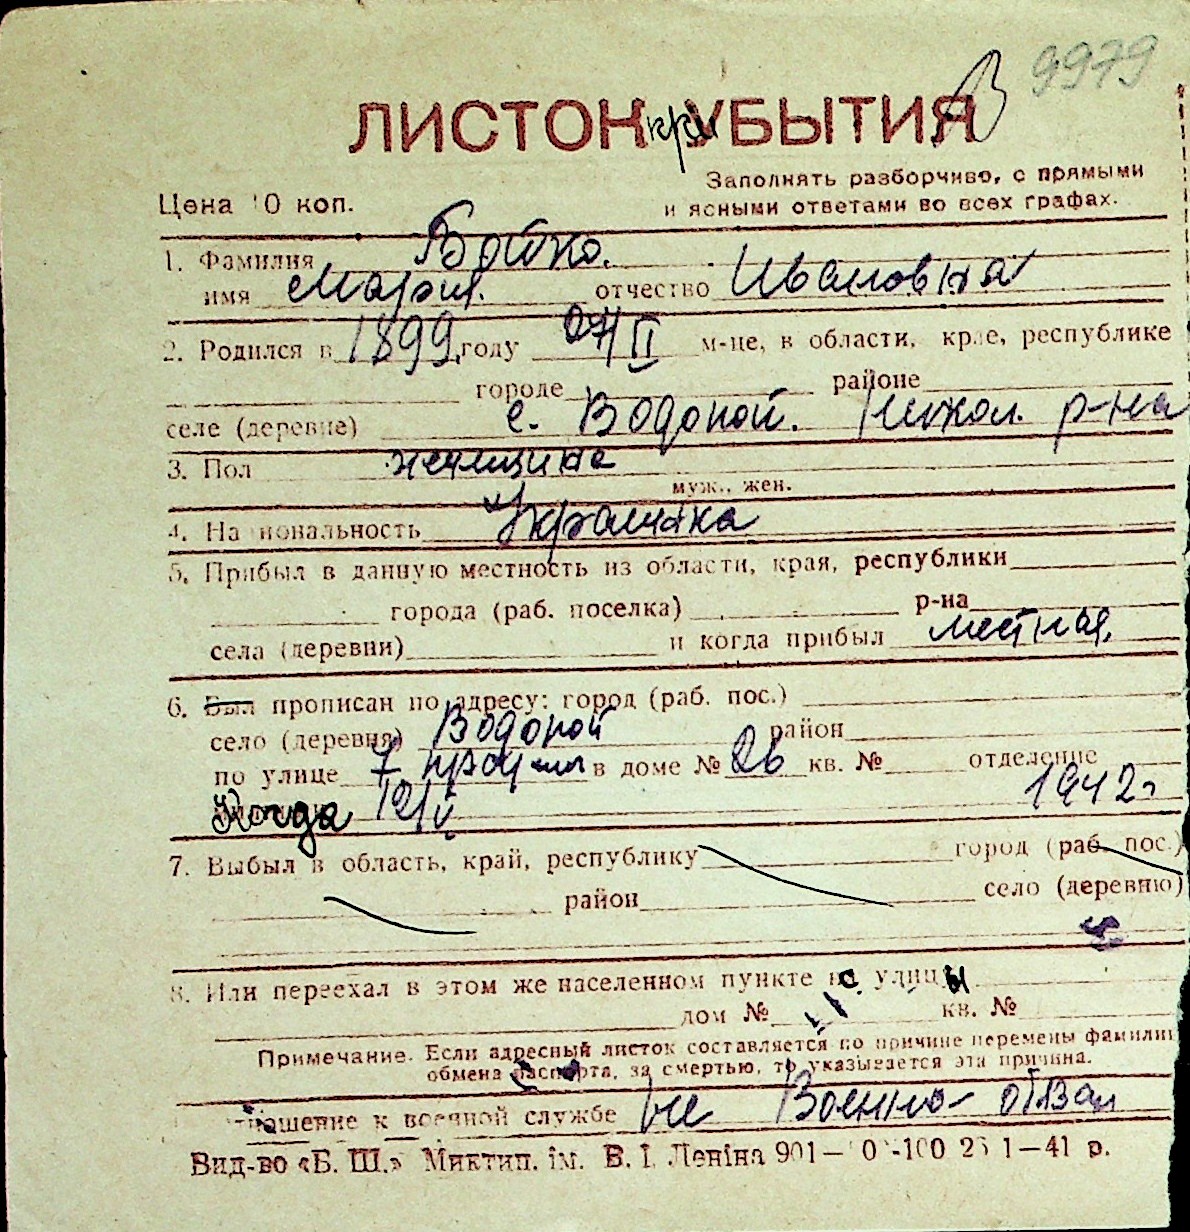 9979
ЛИСТОК при УБЫТИЯ
Заполнять разборчиво, с прямыми
Цена 10 коп. и ясными ответами во всех графах.
1. Фамилия Бойко.
имя Мария. отчество Ивановна
2. Родился в 1899 году 07/II м-це, в области, крае, республике
городе районе
селе (деревне) с. Водопой. Никол. р-на
3. Пол женщина
муж., жен.
4. Национальность Украинка
5. Прибыл в данную местность из области, края, республики
города (раб. поселка) р-на
села (деревни) и когда прибыл местная.
6. Был прописан по адресу: город (раб. пос.)
село (деревня) Водопой район
по улице 7 продольн в доме № 26 кв. № отделение
Когда 12/V 1942 г
7. Выбыл в область, край, республику город (раб. пос.)
район село (деревню)
8. Или переехал в этом же населенном пункте с улицы
дом № кв. №
Примечание. Если адресный листок составляется по причине перемены фамилии
обмена паспорта, за смертью, то указывается эта причина.
Отношение к военной службе не Военно-обязан
Вид-во «Б. Ш.» Миктип. ім. В. І. Леніна 901— 0 -100 25 1—41 р.